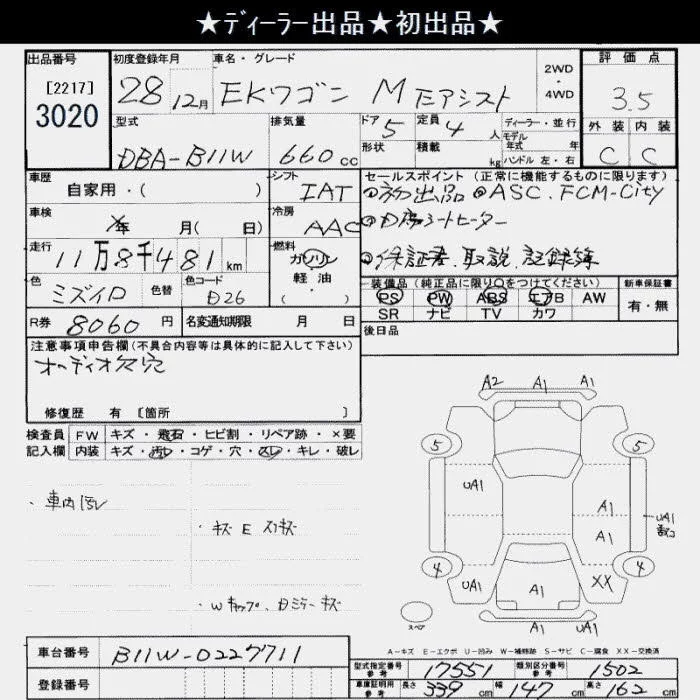 ★ディーラー出品★初出品★
出品番号 初度登録年月 車名・グレード 2WD・4WD 評価点
[2217]
3020
28 12月 EKワゴン M eアシスト 3.5
型式 排気量 ドア 5 定員 4人 ディーラー・並行 外装 内装
モデル年式 年
DBA-B11W 660cc 形状 積載 kg ハンドル 左・右 C C
車歴 シフト セールスポイント(正常に機能するものに限ります)
自家用・( ) IAT ①初出品 ②ASC. FCM-City
車検 年 月( 日) 冷房 AAC
シートヒーター
走行 燃料
11万8千481km ガソリン 保証書.取説.記録簿
軽油・( )
色 色替 色コード 装備品(純正品に限り○をつけてください) 新車保証書
ミズイロ D26 PS PW ABS エアB AW 有・無
SR ナビ TV カワ
R券 8060円 名変通知期限 月 日 後日品
注意事項申告欄(不具合内容等は具体的に記入して下さい)
オーディオ欠穴
修復歴 有 [箇所 ]
検査員 FW キズ・飛石・ヒビ割・リペア跡・×要
記入欄 内装 キズ・汚レ・コゲ・穴・スレ・キレ・破レ
・車内汚レ
・キズ E スリキズ
・Wキャップ.Dミラーキズ
A2 A1 A1
5 5
UA1 A1 UA1
A1
4 4
UA1 A1 XX
UA1 A1
スペア
A-キズ E-エクボ U-凹み W-補修跡 S-サビ C-腐食 XX-交換済
車台番号 B11W-0227711 型式指定番号 参考 17551 類別区分番号 参考 1502
登録番号 車庫証明用 参考 長さ 339cm 幅 147cm 高さ 162cm